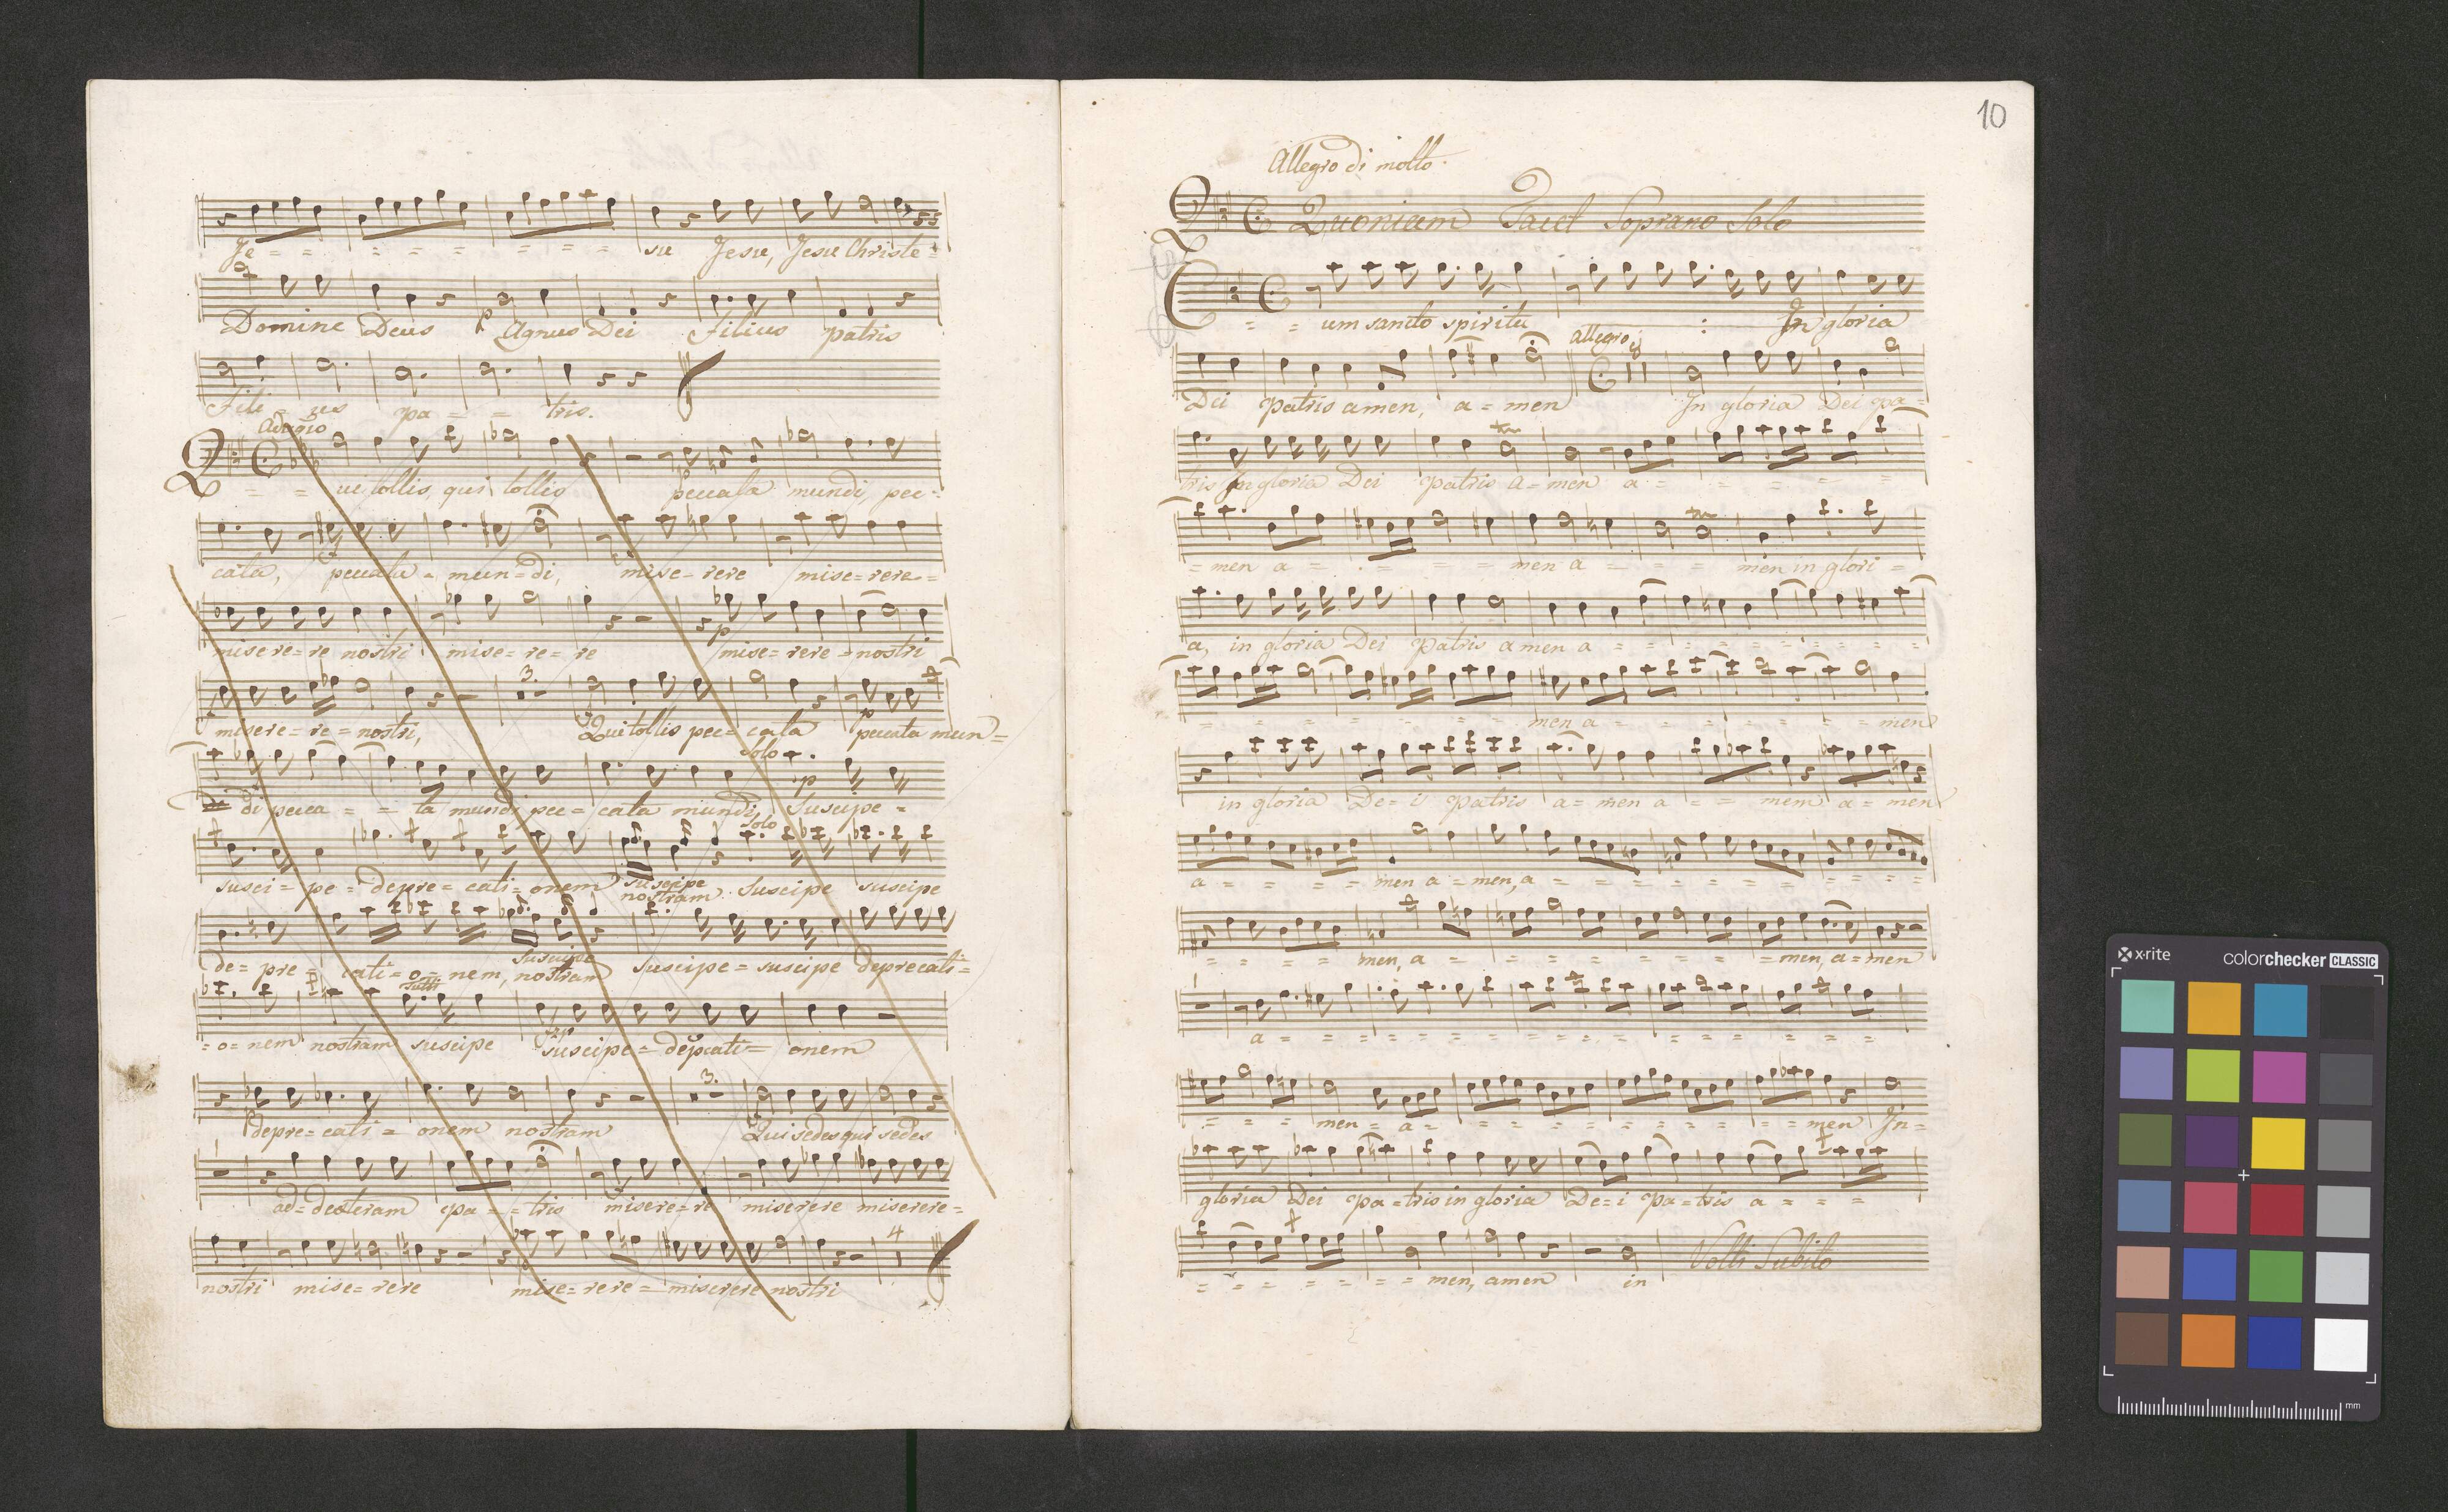 Je = = = = = = = = = su Jesu, Jesu Christe =
Domine Deus Agnus Dei Filius patris
p
Fili = us pa = = tris.
Adagio
Q = = ui tollis, qui tollis peccata mundi, pec =
p
cata, peccata = mun = di, mise = rere mise = rere =
misere = re nostri mise = re = re mise = rere = nostri
p
3.
misere = re = nostri, Qui tollis pec = cata peccata mun =
p
Solo
p
di pecca = = ta mundi pec = cata mundi Suscipe =
Solo
susci = pe = depre = cati = onem suscipe Suscipe suscipe
nostram
de = pre = cati = o = nem, nostram Suscipe = suscipe deprecati =
suscipe
tutti
= o = nem nostram suscipe suscipe = depcati = onem
3.
depre = cati = onem nostram Qui sedes qui sedes
ad = dexteram pa = = tris misere = re miserere miserere =
4
nostri mise = rere mise = rere = miserere nostri
10
Allegro di molto.
Quoniam Tacet Soprano Solo
C = = um sancto spiritu : In gloria
Allegro
Dei patris amen, a = men In gloria Dei pa =
tris In gloria Dei patris a = men a = = = = =
= men a = = = = = men a = = = men in glori =
a, in gloria Dei patris amen a = = = = = = = = =
= = = = = = = men a = = = = = = = men
in gloria De = i patris a = men a = = men a = men
a = = = = = men a = men, a = = = = = = = = = = =
= = = = men, a = = = = = = = = men, a = men
a = = = = = = = = = = = = = = = =
= = = men = a = = = = = = = = = = = men In =
gloria Dei pa = tris in gloria De = i pa = tris a = = =
= = = = = = = = men, amen in Volti Subito
x-rite
colorchecker CLASSIC
mm